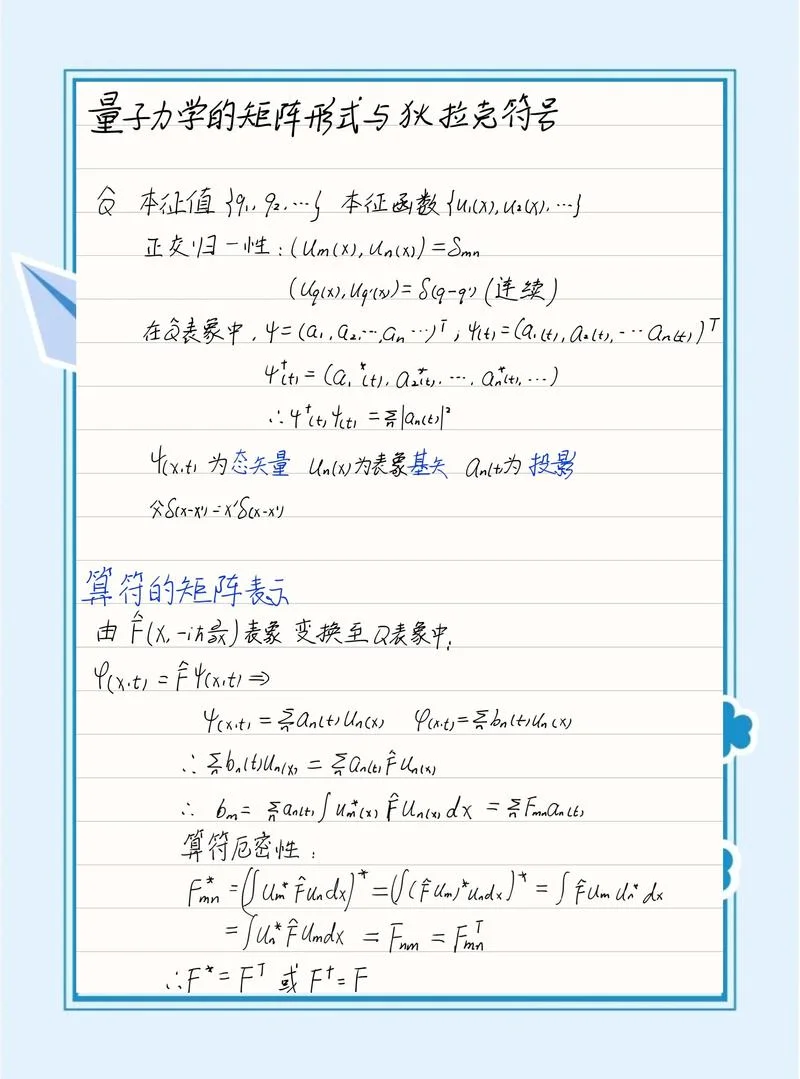 量子力学的矩阵形式与狄拉克符号
Q̂ 本征值 {q₁, q₂, ⋯} 本征函数 {u₁(x), u₂(x), ⋯}
正交归一性: (um(x), un(x)) = δmn
(uq(x), uq'(x)) = δ(q-q') (连续)
在Q̂表象中, ψ = (a₁, a₂, ⋯, an ⋯)ᵀ, ψ(t) = (a₁(t), a₂(t), ⋯ an(t))ᵀ
ψ†(t) = (a₁*(t), a₂*(t), ⋯, an*(t), ⋯)
∴ ψ†(t) ψ(t) = Σn |an(t)|²
ψ(x,t) 为态矢量 un(x)为表象基矢 an(t)为 投影
δ(x-x') = x'δ(x-x')
算符的矩阵表示
由 F̂(x, -iħ ∂/∂x) 表象 变换至 Q表象中:
φ(x,t) = F̂ψ(x,t) ⇒
ψ(x,t) = Σn an(t) un(x) φ(x,t) = Σn bn(t) un(x)
∴ Σn bn(t) un(x) = Σn an(t) F̂ un(x)
∴ bm = Σn an(t) ∫ um*(x) F̂ un(x) dx = Σn Fmn an(t)
算符厄密性:
Fmn* = (∫ um* F̂ un dx)* = (∫ (F̂ um)* un dx)* = ∫ F̂ um un* dx
= ∫ un* F̂ um dx = Fnm = Fmnᵀ
∴ F* = Fᵀ 或 F† = F